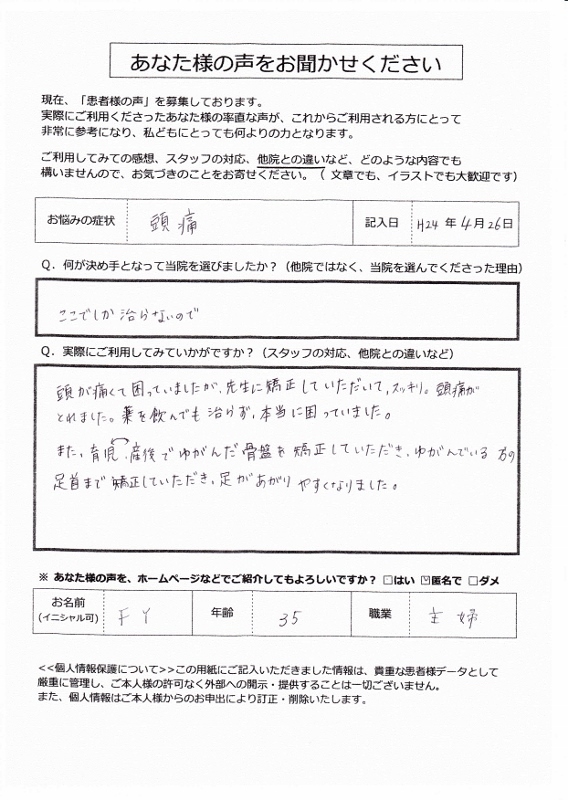 あなた様の声をお聞かせください
現在、「患者様の声」を募集しております。
実際にご利用くださったあなた様の率直な声が、これからご利用される方にとって
非常に参考になり、私どもにとっても何よりの力となります。
ご利用してみての感想、スタッフの対応、他院との違いなど、どのような内容でも
構いませんので、お気づきのことをお寄せください。（ 文章でも、イラストでも大歓迎です）
お悩みの症状 頭痛 記入日 H24 年 4 月 26 日
Q．何が決め手となって当院を選びましたか？（他院ではなく、当院を選んでくださった理由）
ここでしか治らないので
Q．実際にご利用してみていかがですか？（スタッフの対応、他院との違いなど）
頭が痛くて困っていましたが、先生に矯正していただいて、スッキリ。頭痛が
とれました。薬を飲んでも治らず、本当に困っていました。
また、育児、産後でゆがんだ骨盤を矯正していただき、ゆがんでいる方の
足首まで矯正していただき、足があがりやすくなりました。
※ あなた様の声を、ホームページなどでご紹介してもよろしいですか？ □はい ☑匿名で □ダメ
お名前 (イニシャル可) F Y 年齢 35 職業 主婦
<<個人情報保護について>>この用紙にご記入いただきました情報は、貴重な患者様データとして
厳重に管理し、ご本人様の許可なく外部への開示・提供することは一切ございません。
また、個人情報はご本人様からのお申出により訂正・削除いたします。